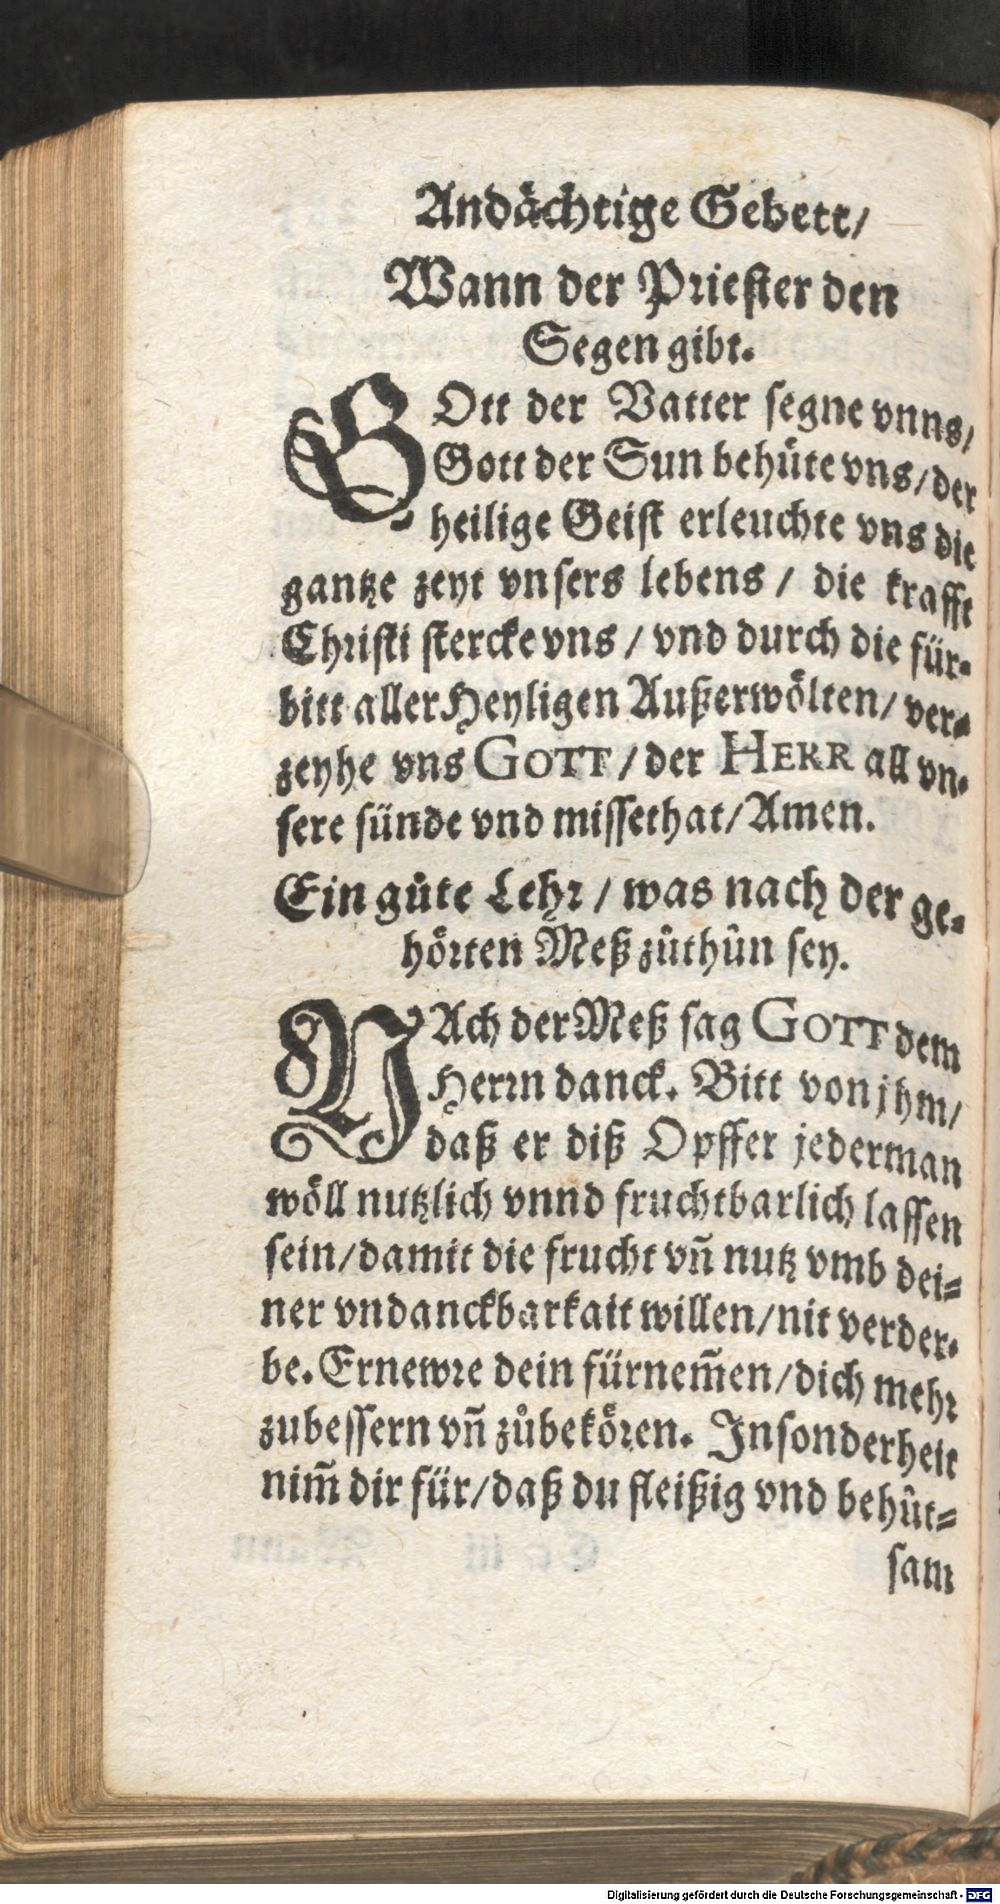 Andächtige Gebett/
Wann der Priester den
Segen gibt.
GOtt der Vatter segne vnns/
Gott der Sun behůte vns/der
heilige Geist erleuchte vns die
gantze zeyt vnsers lebens / die krafft
Christi stercke vns / vnd durch die für-
bitt aller Heyligen Außerwölten/ ver-
zeyhe vns GOTT / der HERR all vn-
sere sünde vnd missethat/Amen.
Ein gůte Lehr / was nach der ge-
hörten Meß zůthůn sey.
NAch der Meß sag GOTT dem
Herrn danck. Bitt von jhm/
daß er diß Opffer jederman
wöll nutzlich vnnd fruchtbarlich lassen
sein/damit die frucht vñ nutz vmb dei-
ner vndanckbarkait willen/nit verder-
be. Ernewre dein fürnem̃en/dich mehr
zubessern vñ zůbekören. Insonderheit
nim̃ dir für/daß du fleißig vnd behůt-
sam
Digitalisierung gefördert durch die Deutsche Forschungsgemeinschaft - DFG